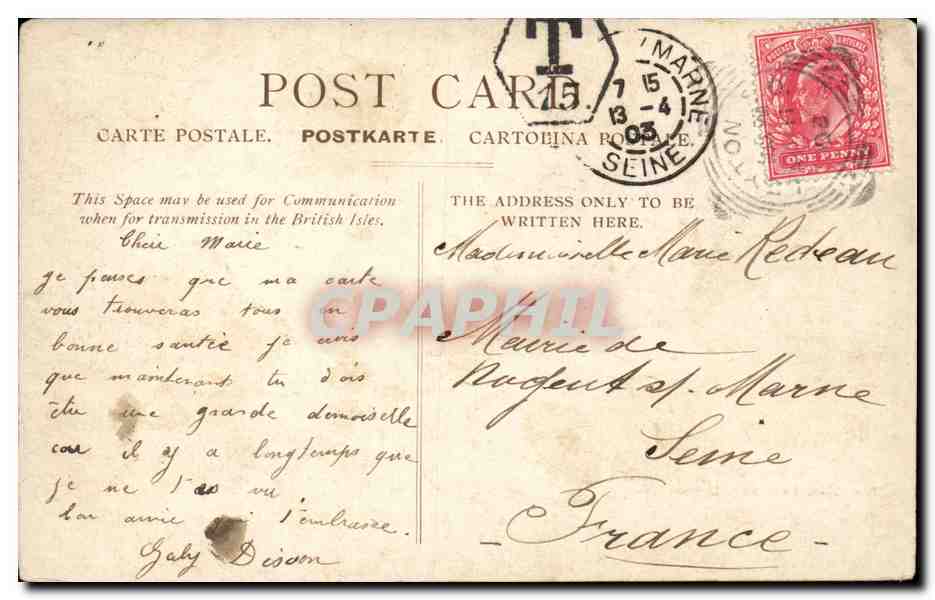 POST CARD.
CARTE POSTALE. POSTKARTE. CARTOLINA POSTALE.
T
15
MARNE
7 15
13 -4
03
SEINE
POSTAGE REVENUE
ONE PENNY
This Space may be used for Communication
when for transmission in the British Isles.
Cheie Marie
je penses que ma carte
vous trouveras tous en
bonne santée je crois
que maintenant tu dois
être une grande demoiselle
car il y a longtemps que
je ne t'as vu
ton amie qui t'embrasse.
Gaby
THE ADDRESS ONLY TO BE
WRITTEN HERE.
Mademoiselle Marie Redeau
Mairie de
Nogent s/. Marne
Seine
- France -
CPAPHIL